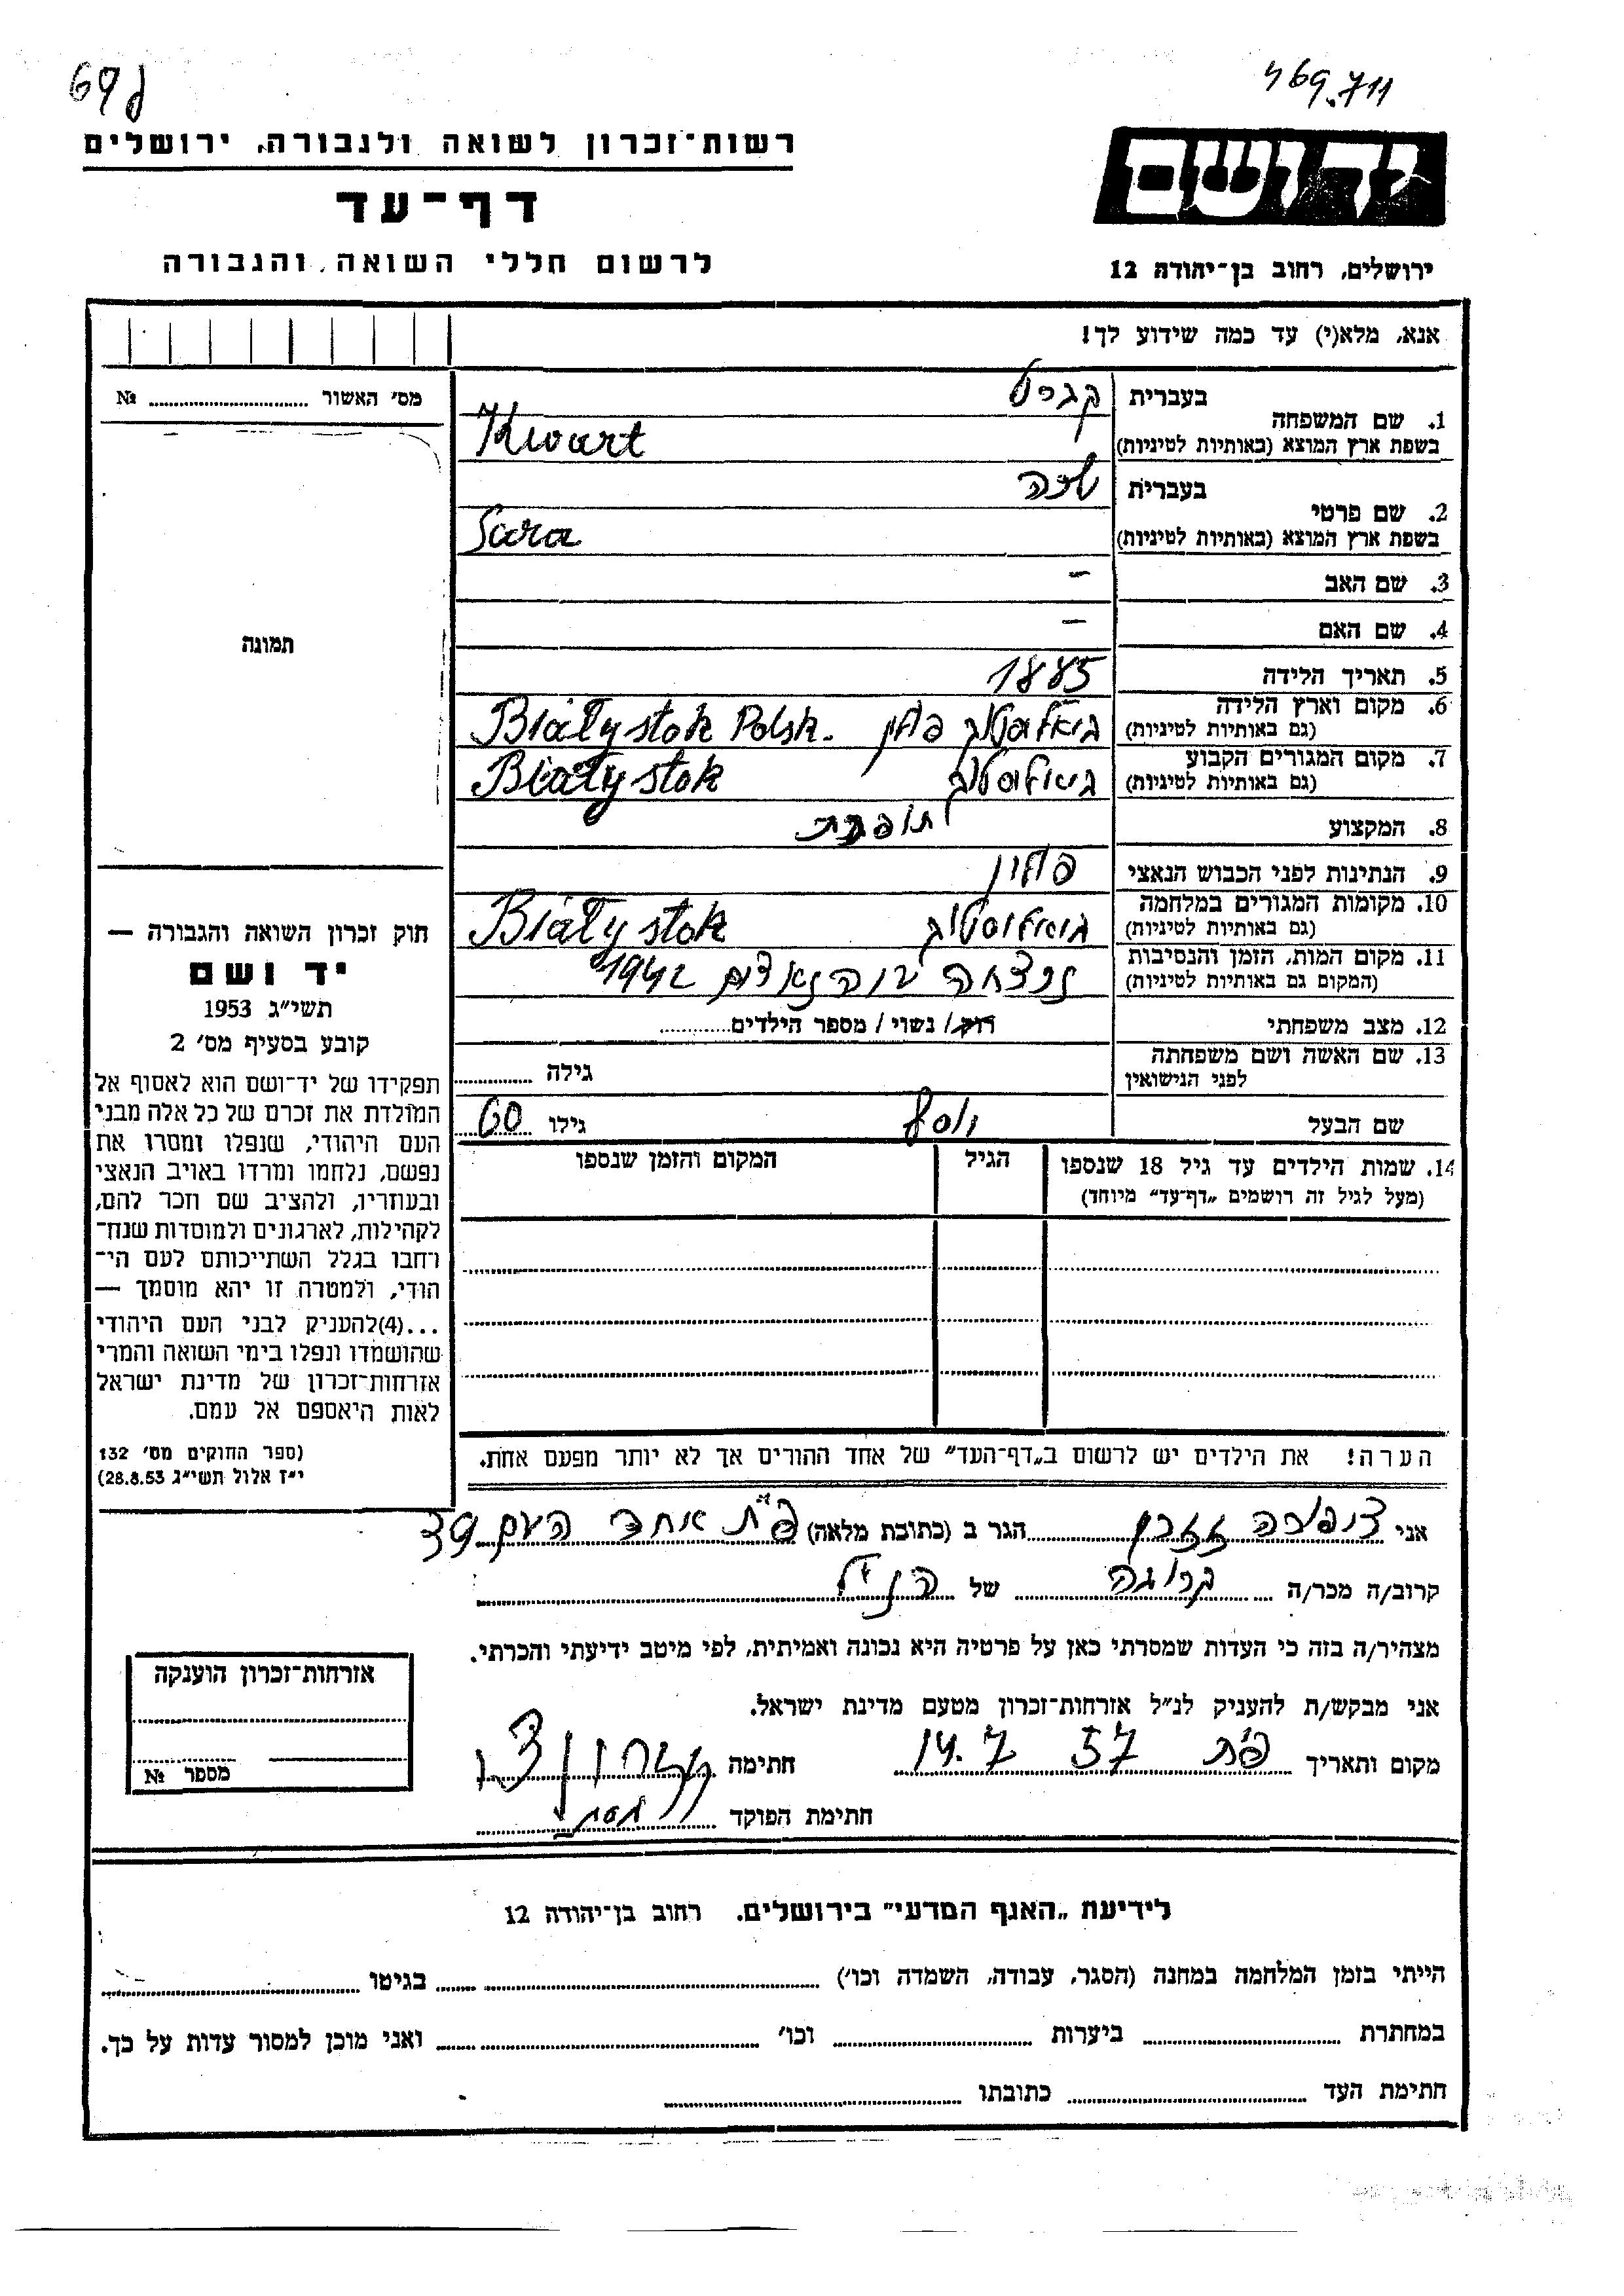 469.711
רשות־זכרון לשואה ולגבורה, ירושלים
דף־עד
לרשום חללי השואה והגבורה
יד ושם
ירושלים, רחוב בן־יהודה 12
אנא, מלא(י) עד כמה שידוע לך!
מס׳ האשור № 
תמונה
חוק זכרון השואה והגבורה —
יד ושם
תשי״ג 1953
קובע בסעיף מס׳ 2
תפקידו של יד־ושם הוא לאסוף אל
המולדת את זכרם של כל אלה מבני
העם היהודי, שנפלו ומסרו את
נפשם, נלחמו ומרדו באויב הנאצי
ובעוזריו, ולהציב שם וזכר להם,
לקהילות, לארגונים ולמוסדות שנח־
רחבו בגלל השתייכותם לעם הי־
הודי, ולמטרה זו יהא מוסמך —
...(4)להעניק לבני העם היהודי
שהושמדו ונפלו בימי השואה והמרי
אזרחות־זכרון של מדינת ישראל
לאות היאספם אל עמם.
(ספר החוקים מס׳ 132
י״ז אלול תשי״ג 28.8.53)
1. שם המשפחה
בעברית קברט
בשפת ארץ המוצא (באותיות לטיניות) Kwart
2. שם פרטי
בעברית שרה
בשפת ארץ המוצא (באותיות לטיניות) Sara
3. שם האב –
4. שם האם –
5. תאריך הלידה 1885
6. מקום וארץ הלידה
(גם באותיות לטיניות) ביאליסטוק פולין Białystok Polsk.
7. מקום המגורים הקבוע
(גם באותיות לטיניות) ביאליסטוק Białystok
8. המקצוע תופרת
9. הנתינות לפני הכבוש הנאצי פולין
10. מקומות המגורים במלחמה
(גם באותיות לטיניות) ביאליסטוק Białystok
11. מקום המות, הזמן והנסיבות
(המקום גם באותיות לטיניות) נרצחה 1942
12. מצב משפחתי רוק/ נשוי / מספר הילדים
13. שם האשה ושם משפחתה
לפני הנישואין גילה
שם הבעל יוסף גילו 60
14. שמות הילדים עד גיל 18 שנספו הגיל המקום והזמן שנספו
(מעל לגיל זה רושמים „דף־עד״ מיוחד)
הערה! את הילדים יש לרשום ב„דף־העד״ של אחד ההורים אך לא יותר מפעם אחת.
אני צפורה הגר ב (כתובת מלאה) פ״ת אחד העם 39
קרוב/ה מכר/ה קרובה של הנ״ל
מצהיר/ה בזה כי העדות שמסרתי כאן על פרטיה היא נכונה ואמיתית, לפי מיטב ידיעתי והכרתי.
אני מבקש/ת להעניק לנ״ל אזרחות־זכרון מטעם מדינת ישראל.
מקום ותאריך פ״ת 14.7 57 חתימה
חתימת הפוקד
אזרחות־זכרון הוענקה
מספר №
לידיעת „האגף המדעי״ בירושלים, רחוב בן־יהודה 12
הייתי בזמן המלחמה במחנה (הסגר, עבודה, השמדה וכו׳) בגיטו
במחתרת ביערות וכו׳ ואני מוכן למסור עדות על כך.
חתימת העד כתובתו